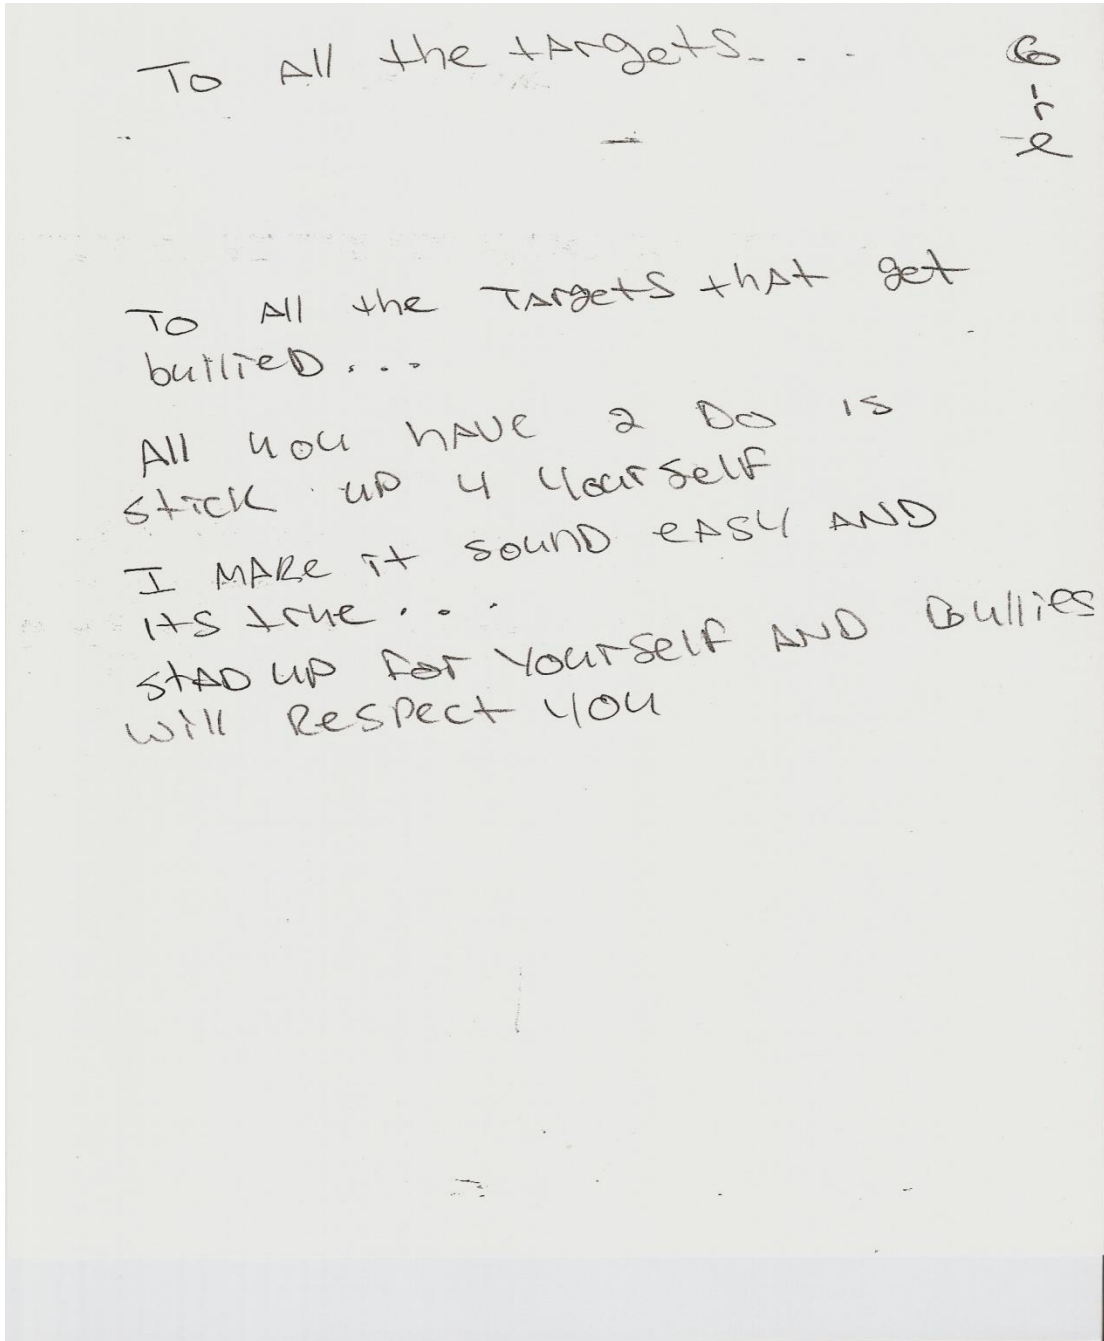 To All the tArgets...
To All the TArgets thAt get
bullieD...
All you hAve 2 Do is
stick up 4 YourSelf
I MAKe it sounD eASy AND
its true...
stAD up for YourSelf AND Bullies
will Respect you